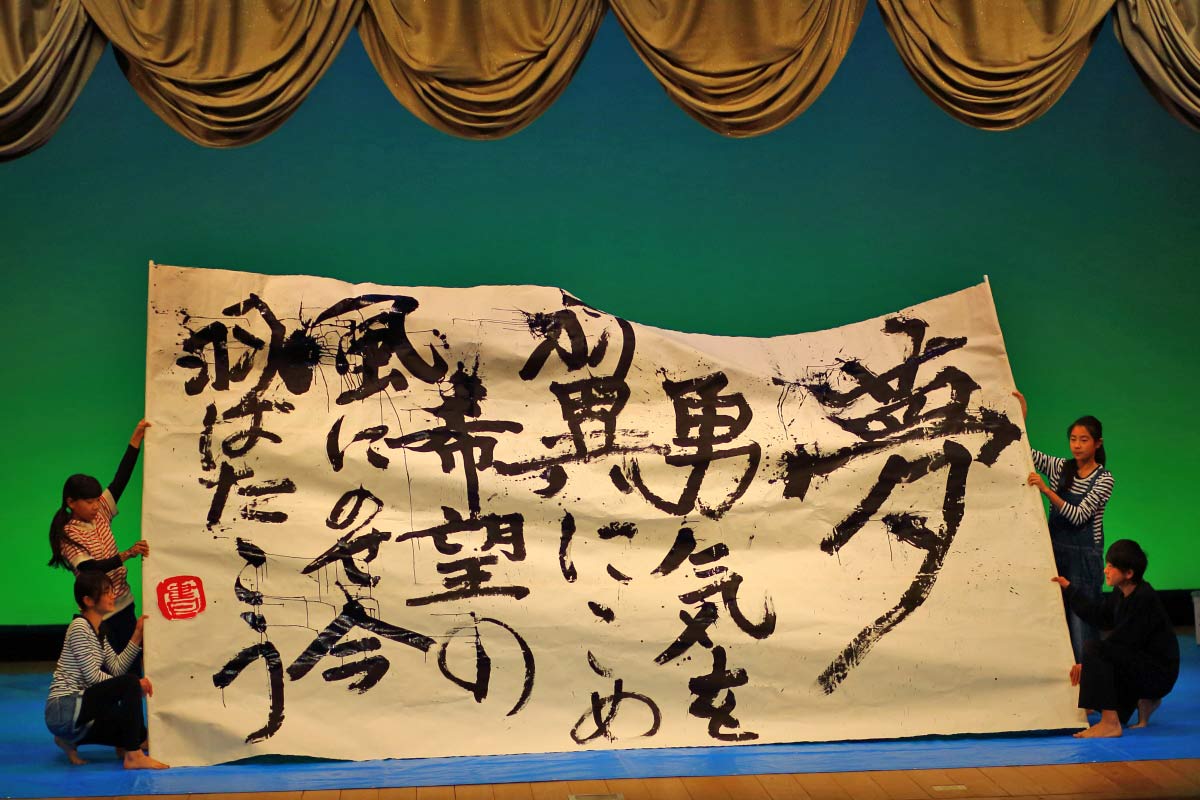 夢
勇気を
翼にこめ
希望の
風にのせ今
羽ばたこう
書